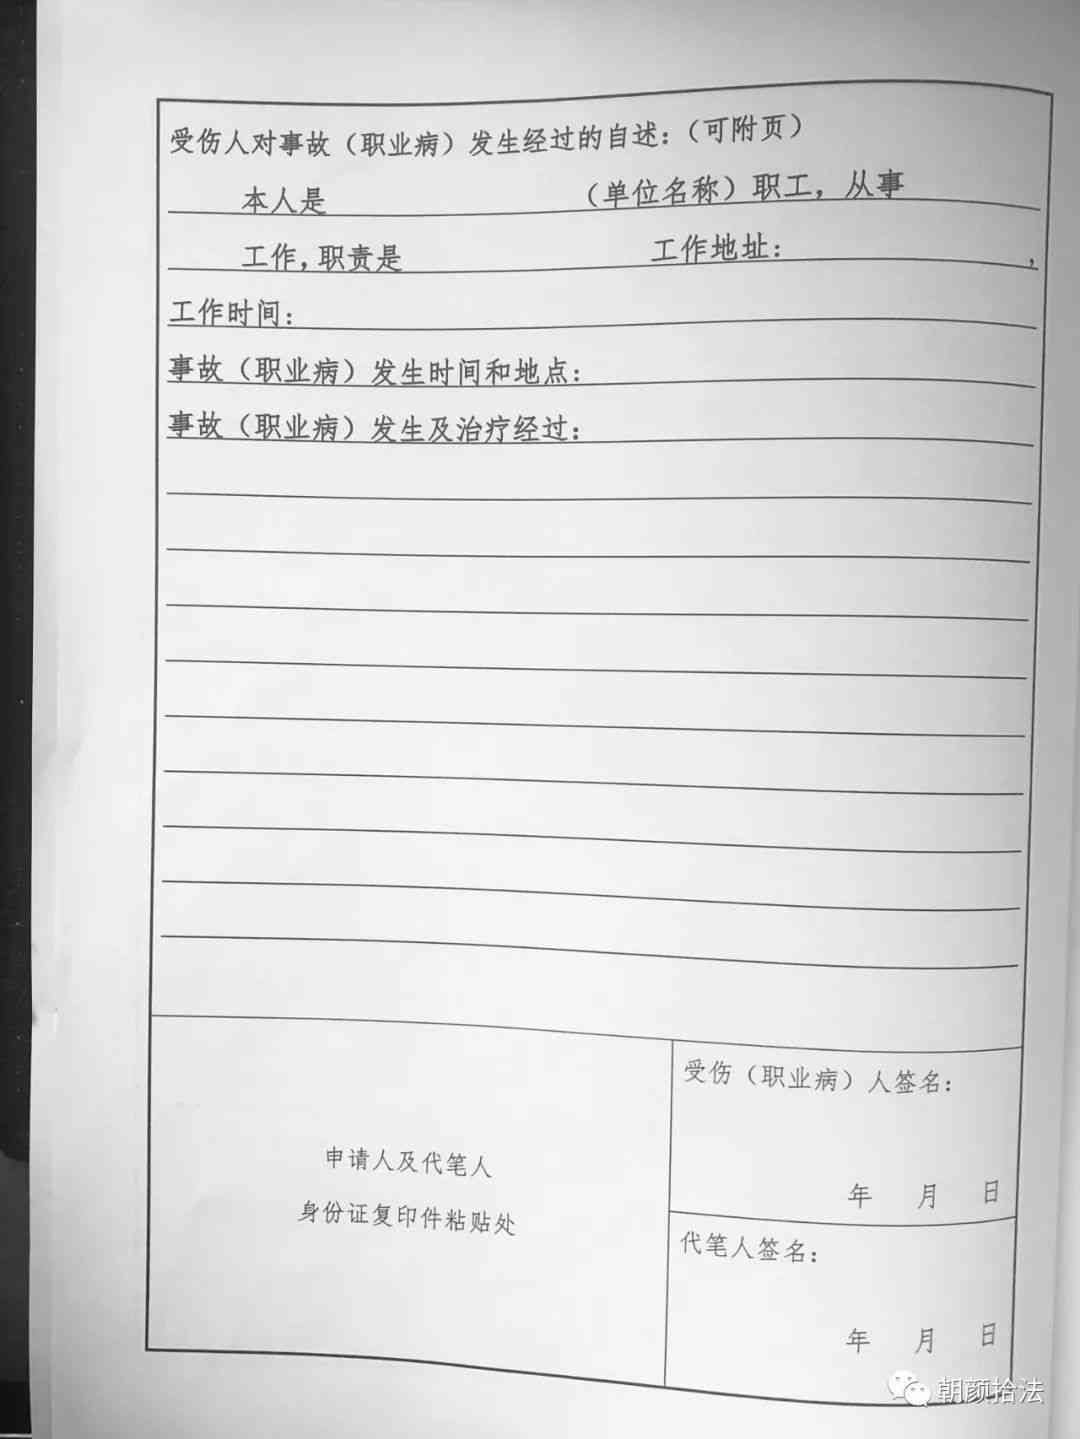 受伤人对事故（职业病）发生经过的自述：（可附页）
本人是 （单位名称）职工，从事
工作，职责是 工作地址： ，
工作时间：
事故（职业病）发生时间和地点：
事故（职业病）发生及治疗经过：
申请人及代笔人
身份证复印件粘贴处
受伤（职业病）人签名：
年 月 日
代笔人签名：
年 月 日
朝颜拾法